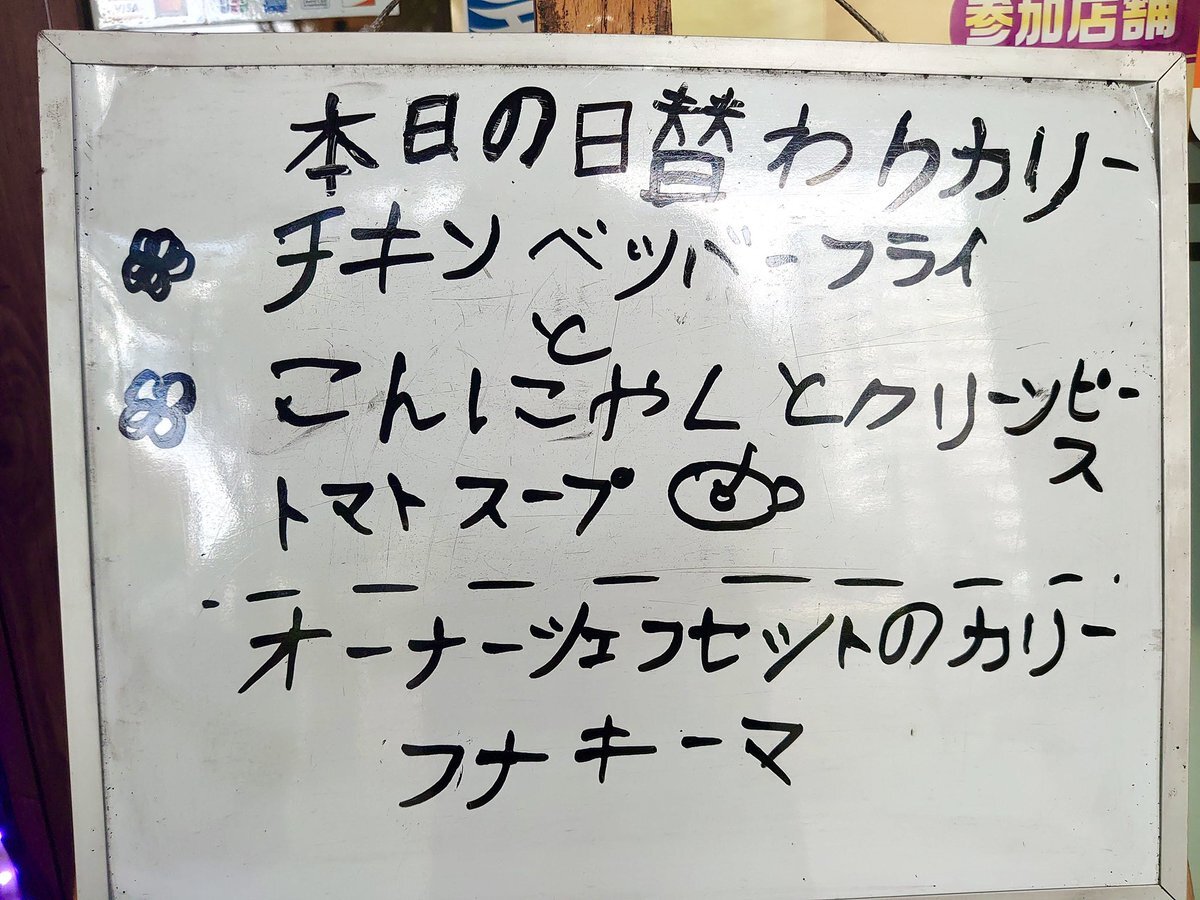 VISA
参加店舗
本日の日替わりカリー
チキンペッパーフライ
と
こんにゃくとクリーンピース
トマトスープ
オーナーシェフセットのカリー
フナキーマ